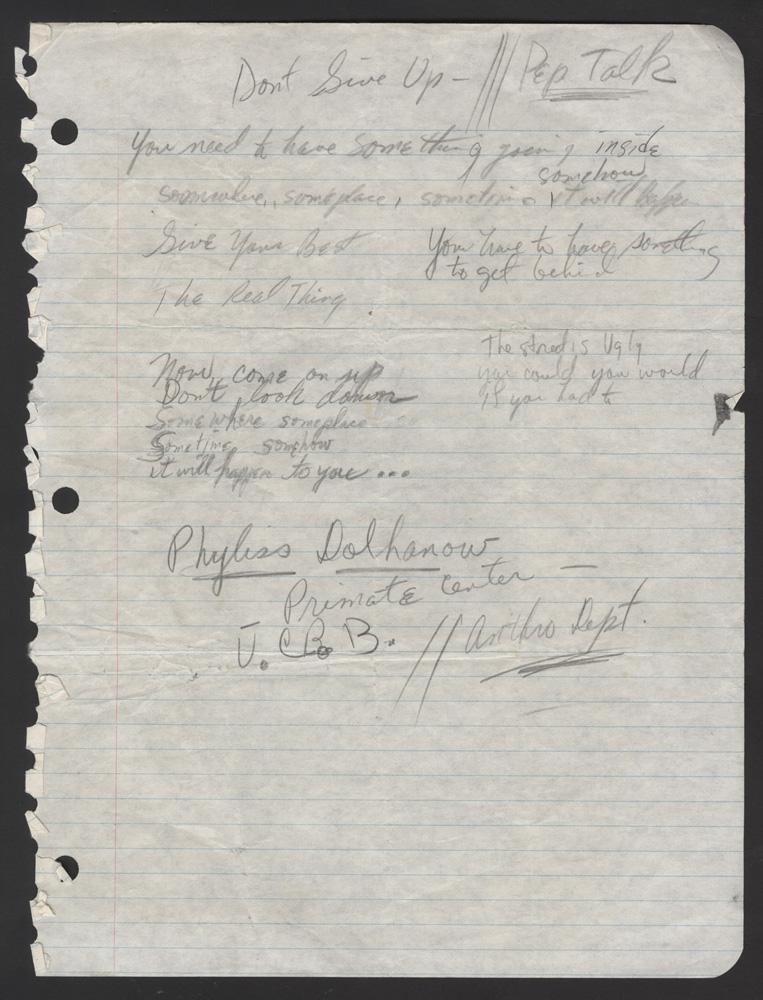 Dont Give Up - /// Pep Talk
You need to have something going inside
somehow
somewhere, someplace, sometime it will happen
Give Your Best
You have to have something
to get behind
The Real Thing
the street is Ugly
you could you would
If you had to
Now, come on up
Don't look down
Somewhere someplace
Sometime, somehow
it will happen to you ...
Phyliss Dolhanow
Primate Center —
U.C.B. // Anthro Dept.